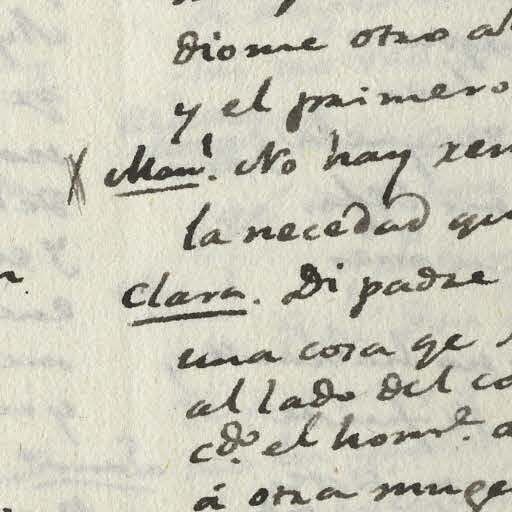 diome otro al
y el primero
X Man.l No hay rem
la necedad qu
Clara. Di padre
una cosa qe
al lado del co
cdo. el home. a
á otra muge